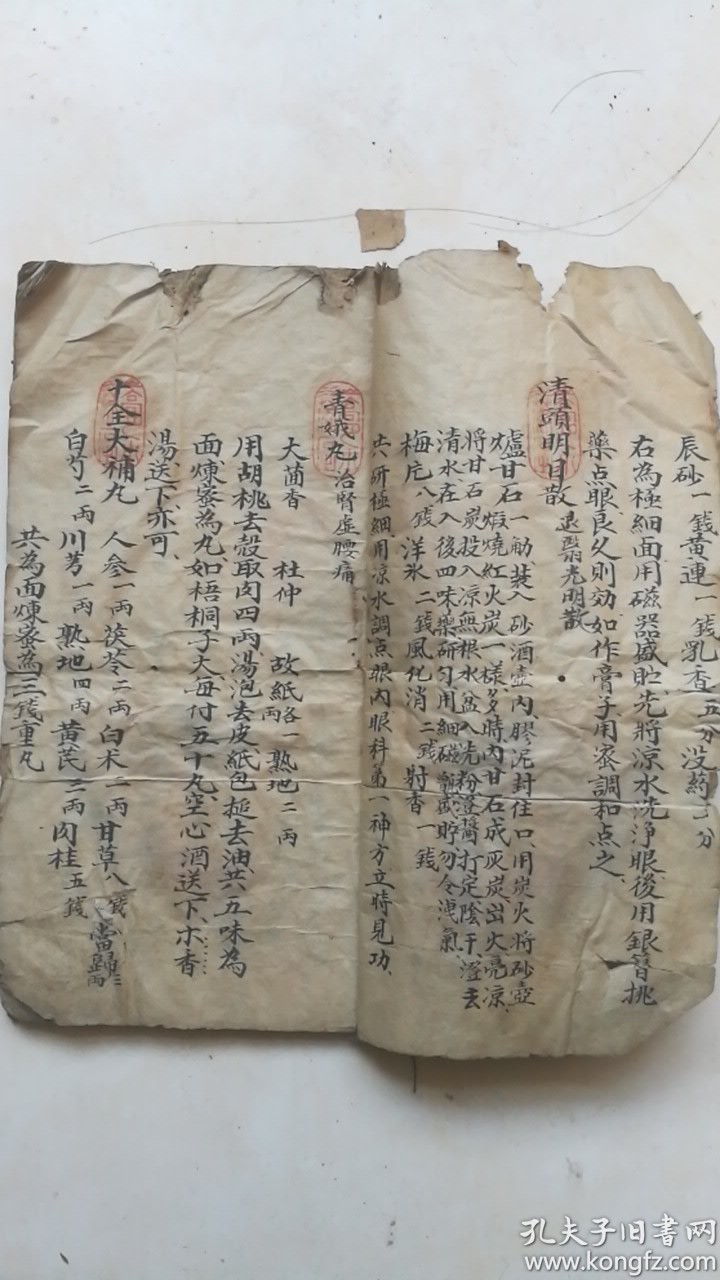 辰砂一錢黄連一錢乳香五分没药二分
右為極細面用磁器盛貯先將凉水洗浄眼後用銀簪挑
藥点眼良久則効如作膏子用蜜調和点之
清頭明目散 退翳光明散
爐甘石一觔裝入砂酒壺内膠泥封住口用炭火將砂壺
煅燒紅火炭一樣多時内甘石成灰炭出火亮凉
將甘石炭投入凉無根水盆入光粉定陰干澄去
清水在入後四味藥研匀用細磁罐盛貯勿令洩氣
梅片八錢洋氷二錢風化消二錢射香一錢
共研極細用凉水調点眼内眼科第一神方立時見功
青娥丸 治腎虚腰痛
大茴香 杜仲 故紙各一兩 熟地二兩
用胡桃去殼取肉四兩湯泡去皮紙包搥去油共五味為
面煉蜜為丸如梧桐子大每付五十丸空心酒送下木香
湯送下亦可
十全大補丸 人參一兩茯苓二兩白术二兩甘草八錢當歸二兩
白芍二兩川芎一兩熟地四兩黄芪三兩肉桂五錢
共為面煉蜜為三錢重丸
孔夫子旧書网
www.kongfz.com